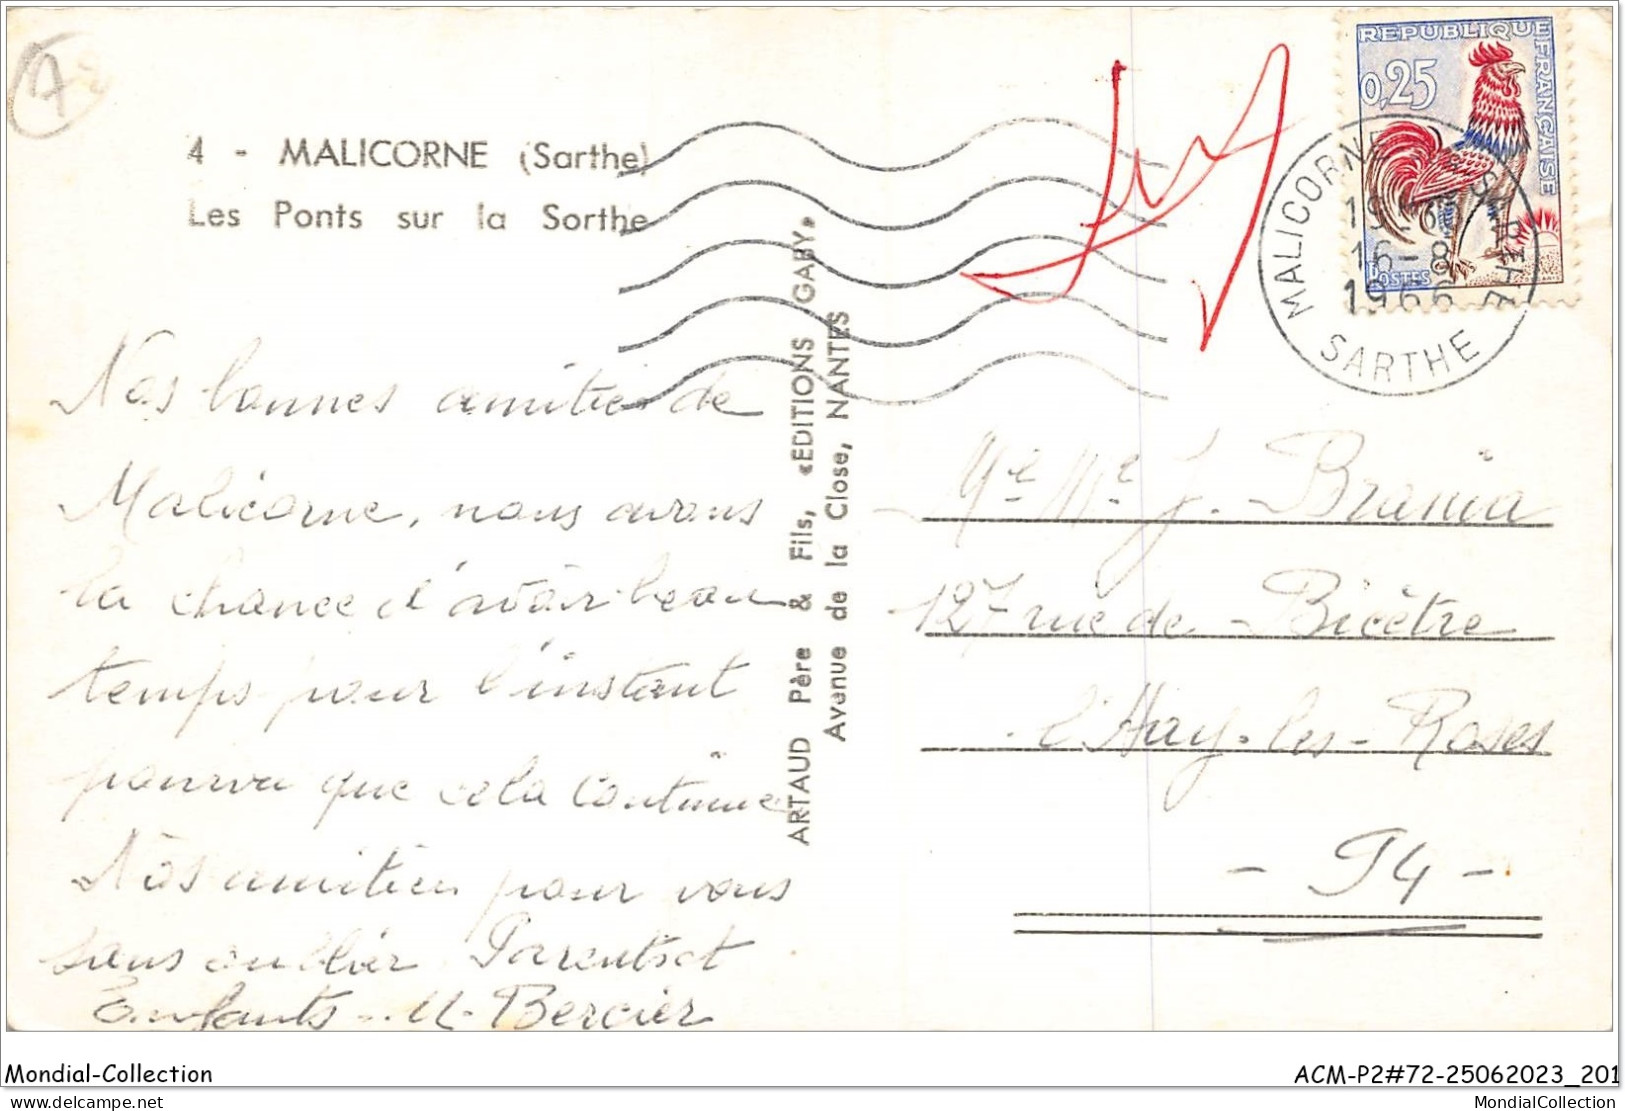 4 - MALICORNE (Sarthe)
Les Ponts sur la Sorthe
REPUBLIQUE FRANÇAISE
0,25
POSTES
MALICORNE S SARTHE
19H30
16-8
1966
SARTHE
ARTAUD Père & Fils, «EDITIONS GABY»
Avenue de la Close, NANTES
Nos bonnes amitiés de
Malicorne, nous avons
la chance d'avoir beau
temps pour l'instant
pourvu que cela continue
Nos amitiés pour vous
sans oublier Parents et
Enfants - M. Bercier
Mr Me J. Brania
127 rue de Bicêtre
l'Hay-les-Roses
- 94 -
Mondial-Collection
ACM-P2#72-25062023_201
www.mondialcollection.com
MondialCollection